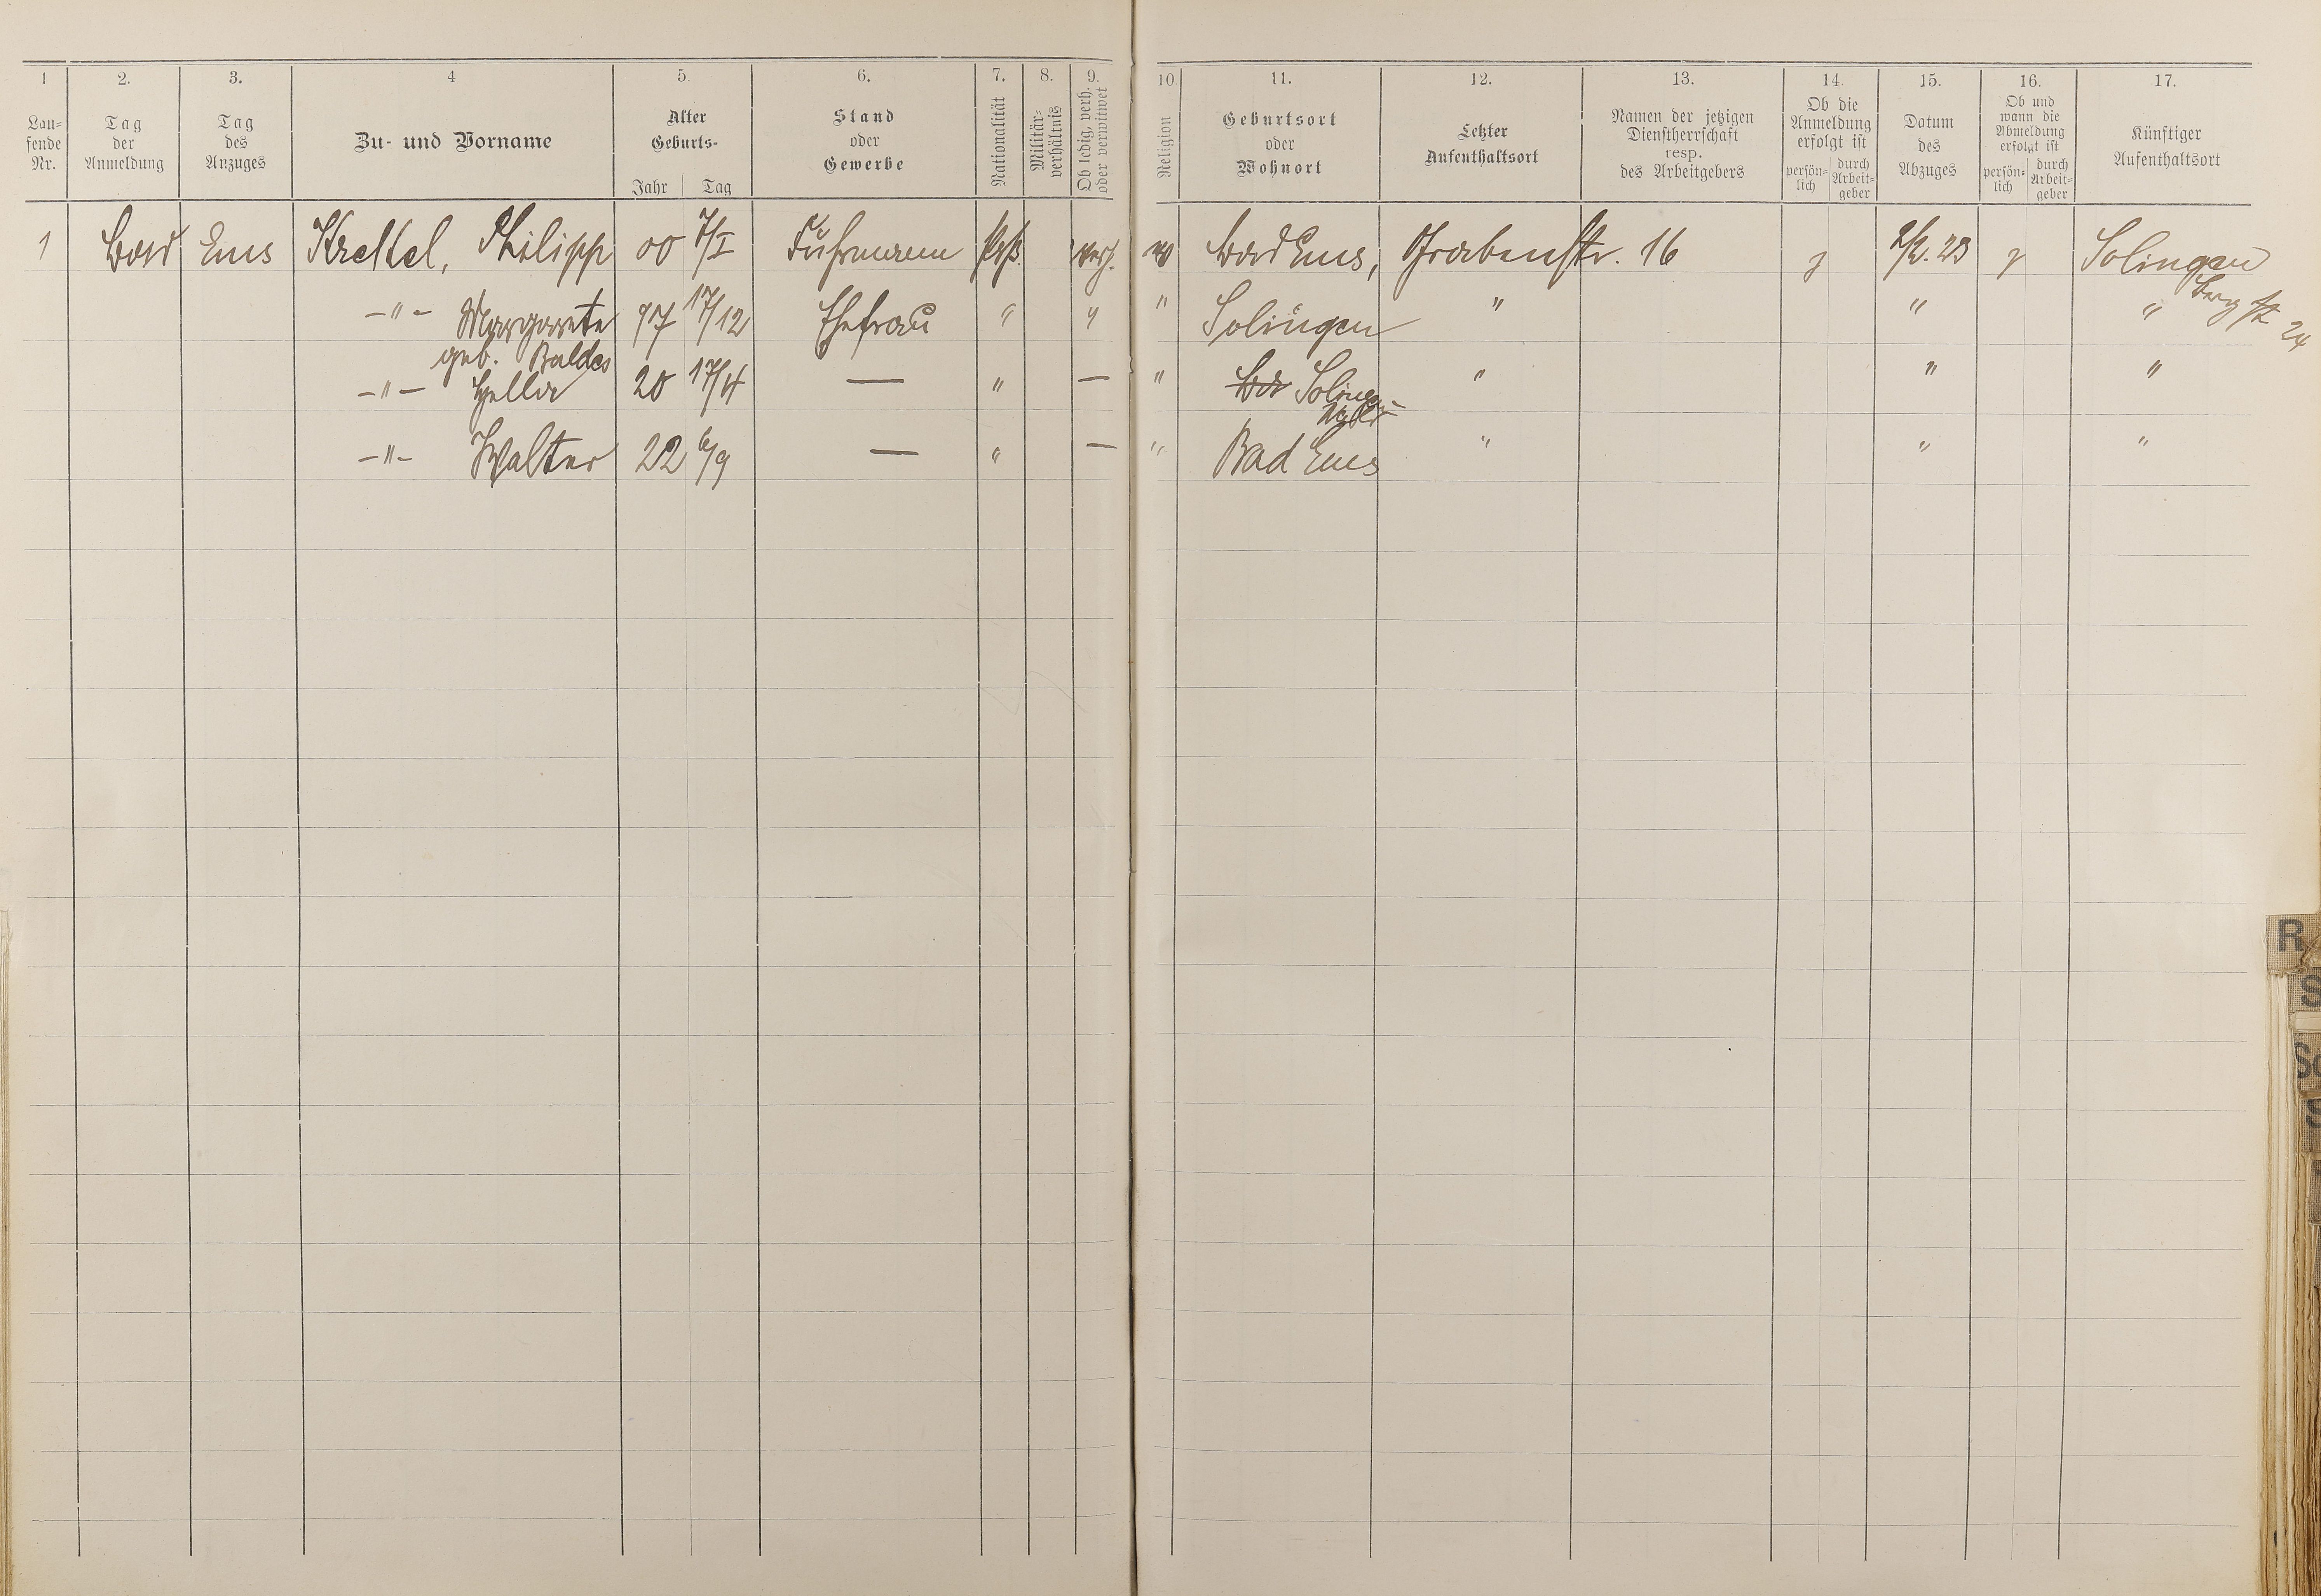 1 2. 3. 4 5. 6. 7. 8. 9. 10 11. 12. 13. 14. 15. 16. 17.
Lau-
fende
Nr.
Tag
der
Anmeldung
Tag
des
Anzuges
Zu- und Vorname
Alter
Geburts-
Jahr Tag
Stand
oder
Gewerbe
Nationalität
Militär-
verhältnis
Ob ledig, verh.
oder verwitwet
Religion
Geburtsort
oder
Wohnort
Letzter
Aufenthaltsort
Namen der jetzigen
Dienstherrschaft
resp.
des Arbeitgebers
Ob die
Anmeldung
erfolgt ist
persön-
lich
durch
Arbeit-
geber
Datum
des
Abzuges
Ob und
wann die
Abmeldung
erfolgt ist
persön-
lich
durch
Arbeit-
geber
Künftiger
Aufenthaltsort
1 Bad Ems Philipp 00 7/I Fuhrmann verh. Bad Ems, Grabenstr. 16 2/2. 23 Solingen
-"- Margarete 97 17/12 Ehefrau " " " Solingen " " "
geb. Baldes
-"- Hella 20 17/4 — " — " Bad Solingen " " "
-"- Walter 22 6/9 — " — " Bad Ems " " "
24
R
S